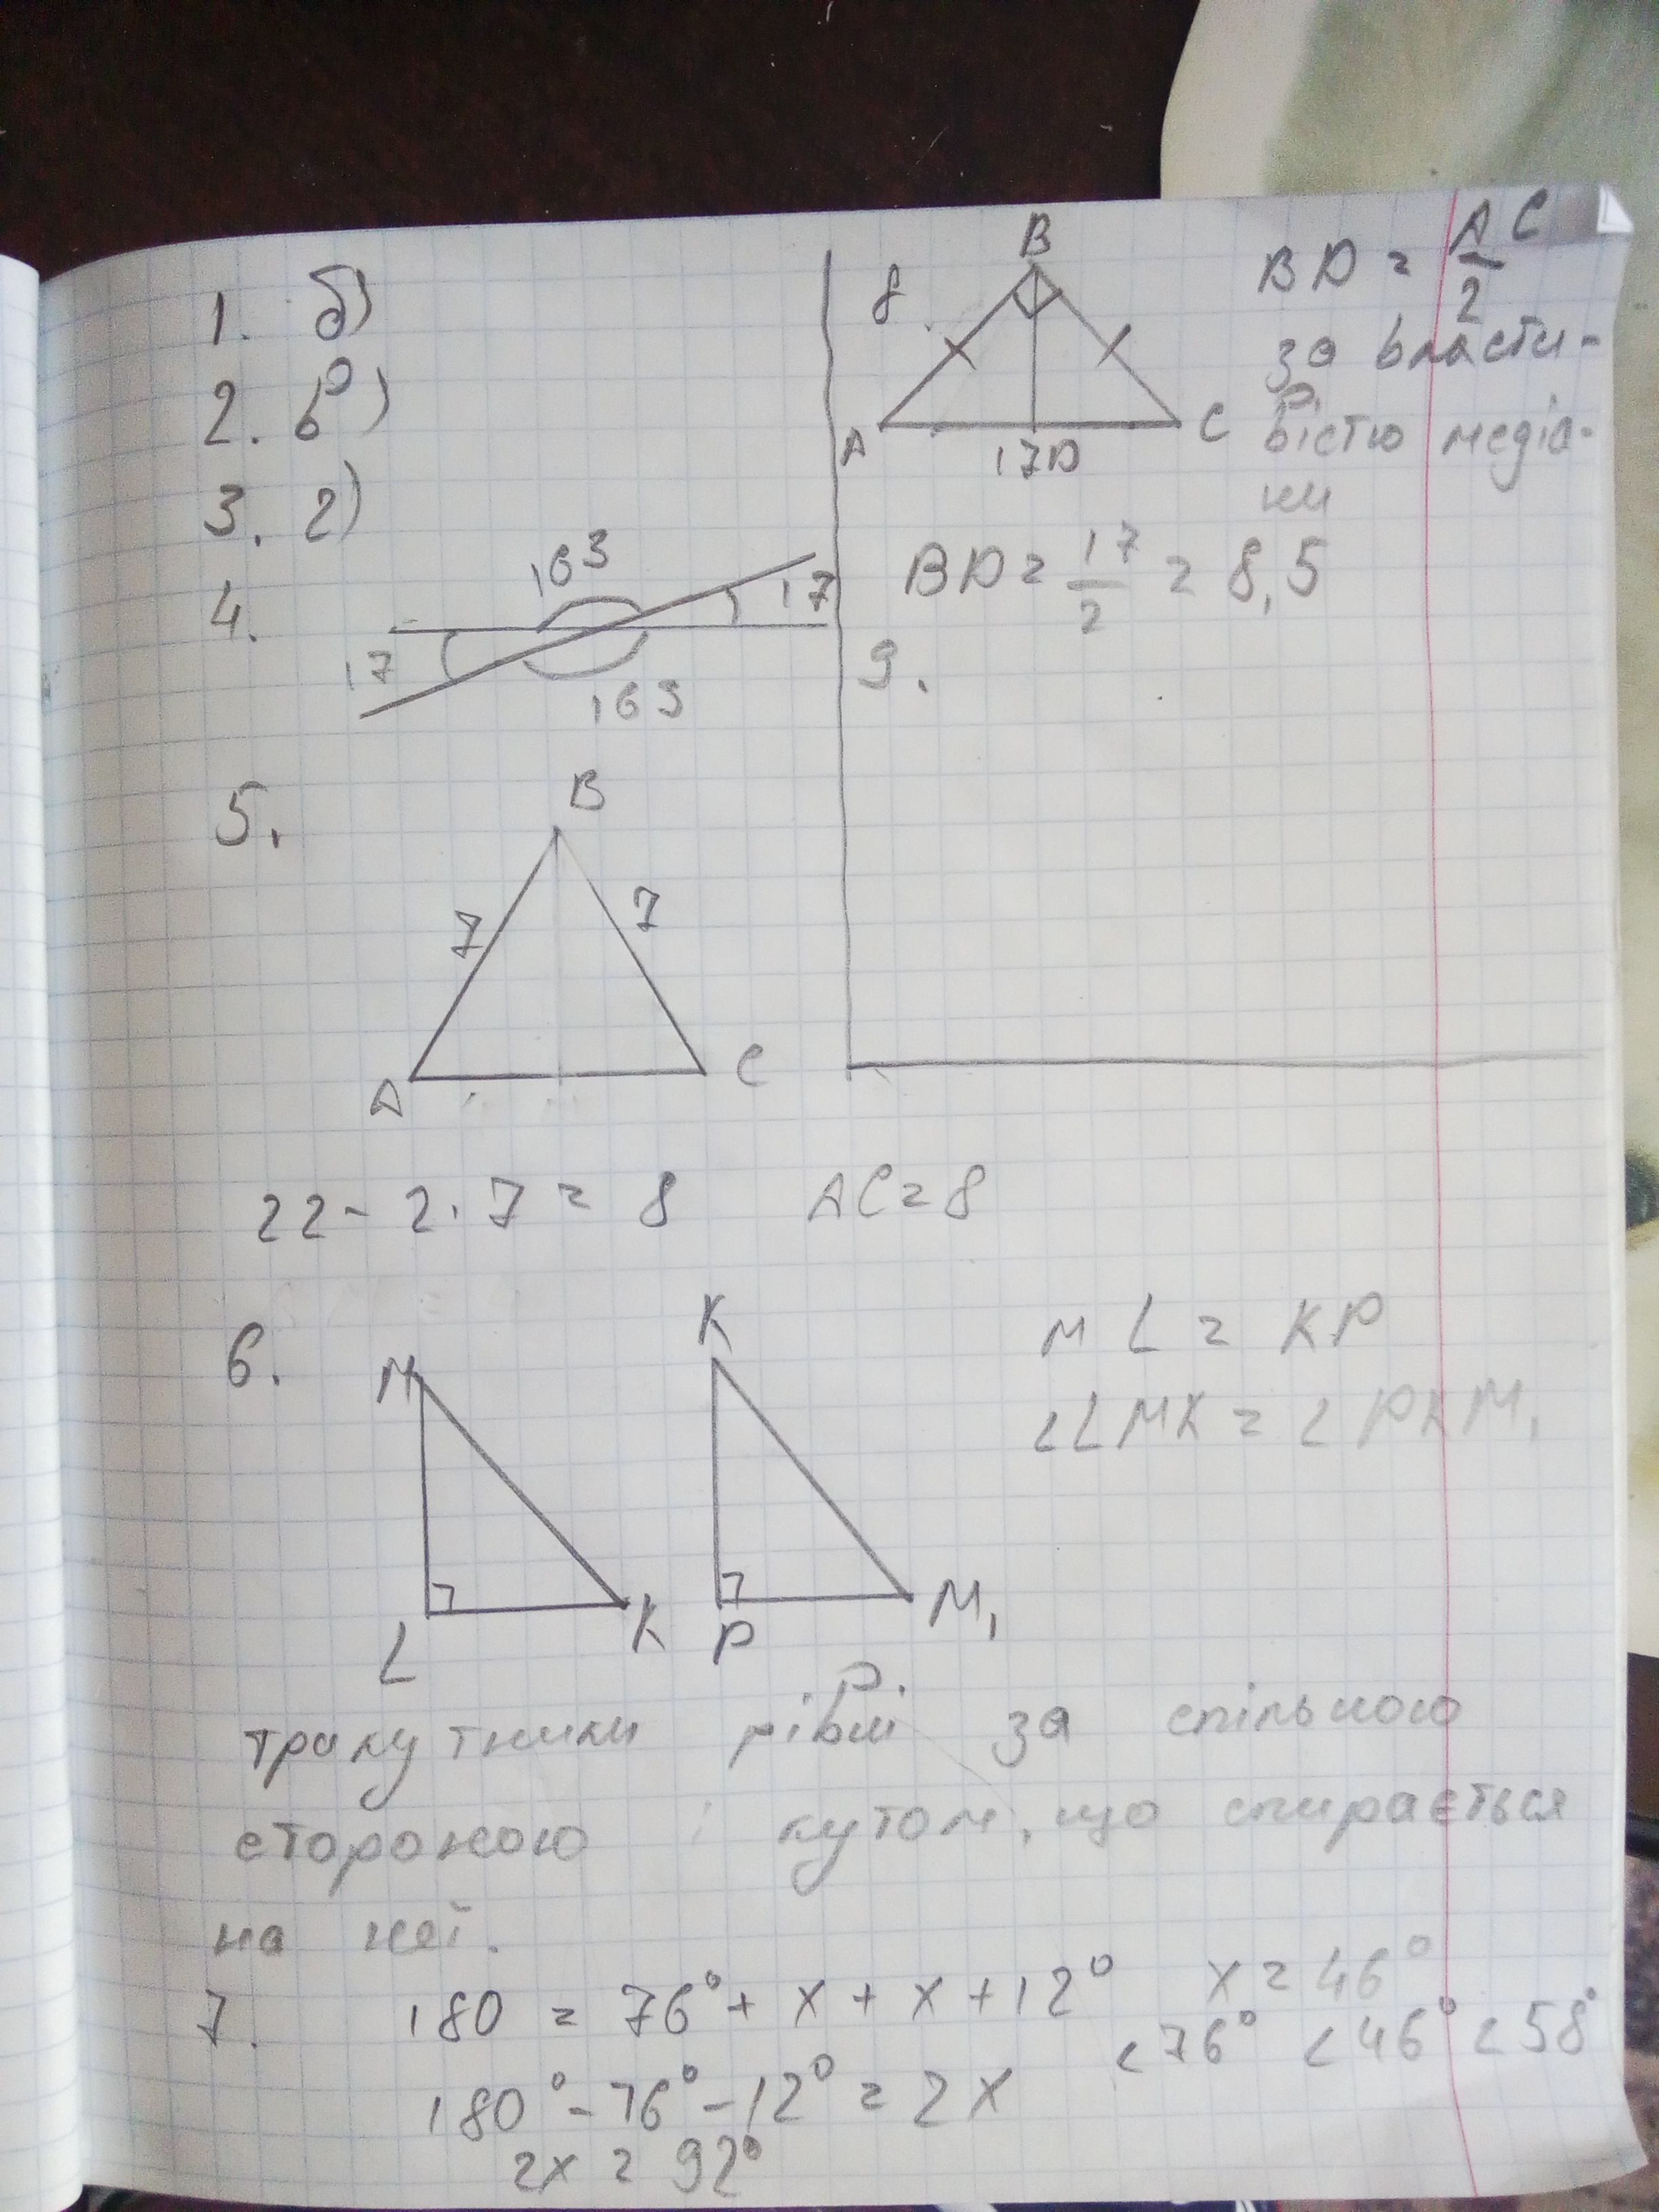 1. б)
2. в)
3. г)
4.
163
17
17
163
5.
B
7
7
A
C
22 - 2 · 7 = 8 AC = 8
6.
M
L
K
K
P
M₁
ML = KP
∠LMK = ∠PKM₁
трикутники рівні за спільною
стороною і кутом, що спирається
на неї.
7. 180 = 76° + x + x + 12°
180° - 76° - 12° = 2x
2x = 92°
x = 46°
∠76° ∠46° ∠58°
8.
B
A
17
D
C
BD = AC/2
за власти-
вістю медіа-
ни
BD = 17/2 = 8,5
9.